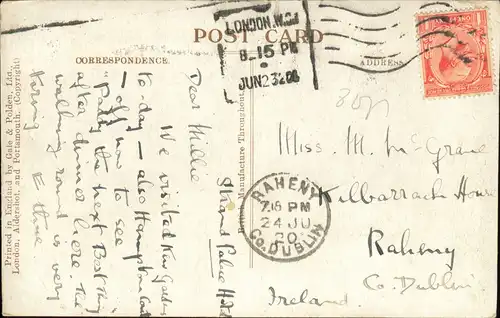 POST CARD
CORRESPONDENCE.
ADDRESS
LONDON. W.C.1
8.15 PM
JUN 23 20
Printed in England by Gale & Polden, Ltd.,
London, Aldershot, and Portsmouth. (Copyright)
Manufacture Throughout.
Strand Palace Hotel
Dear Millie
We visited Kew Gardens
to-day – also Hampton Court
– off now to see
"Paddy the next Best Thing"
after dinner here the
walking round is very
tiring
Miss. M. McGrane
Kilbarrack House
Raheny
Co. Dublin
Ireland
RAHENY
7.15 PM
24 JU
20
Co. DUBLIN